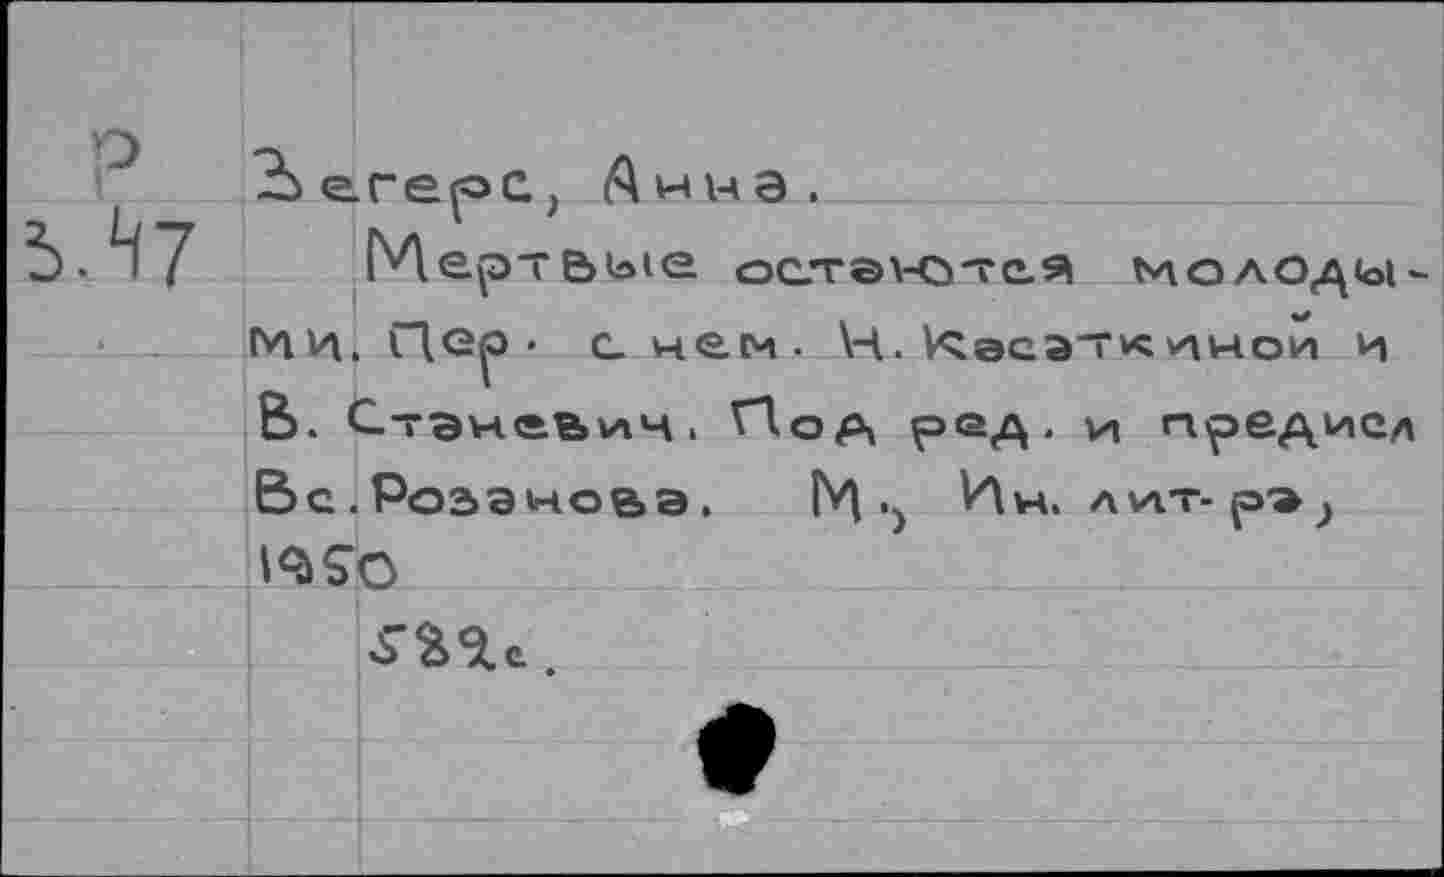 Р
З.47
Зегерс, Анна.
Мертвые остаются молоды-
ми. Пер. с нем. Н. Касаткиной и
В. Станевич. Под ред. и предисл
Вс. Розанова. М., Ин. лит-ра,
1950
582с.